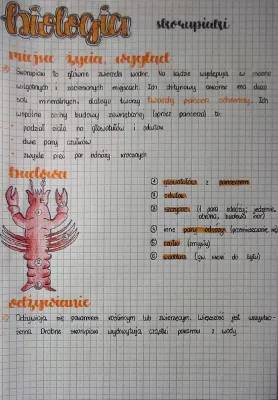 biologia
skorupiaki
miejsce życia, wygląd
Skorupiaki to głównie zwierzęta wodne. Na lądzie występują w mocno
wilgotnych i zacienionych miejscach. Ich chitynowy oskórek ma dużo
soli mineralnych, dlatego tworzy twardy pancerz ochronny. Ich
wspólne cechy budowy zewnętrznej (oprócz pancerza) to:
podział ciała na głowotułów i odwłok
dwie pary czułków
zwykle pięć par odnóży krocznych
budowa
① głowotułów z pancerzem
② odwłok
③ szczypce (I para odnóży; jedzenie,
obrona, budowa nor)
④ inne pary odnóży (przemieszczanie się)
⑤ czułki (zmysły)
⑥ wachlarz
odżywianie
Odżywiają się pokarmem roślinnym lub zwierzęcym. Większość jest wszystko-
żerna. Drobne skorupiaki wychwytują cząstki pokarmu z wody.